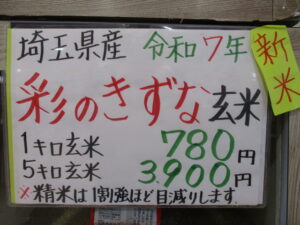 埼玉県産 令和7年
新米
彩のきずな玄米
1キロ玄米 780円
5キロ玄米 3,900円
※精米は1割強ほど目減りします。